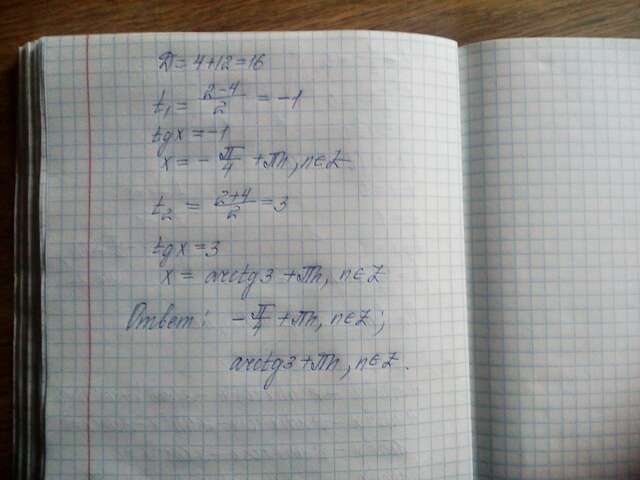 D = 4+12 = 16
t₁ = (2-4)/2 = -1
tgx = -1
x = -π/4 + πn, n∈Z.
t₂ = (2+4)/2 = 3
tgx = 3
x = arctg3 + πn, n∈Z
Ответ: -π/4 + πn, n∈Z;
arctg3 + πn, n∈Z.